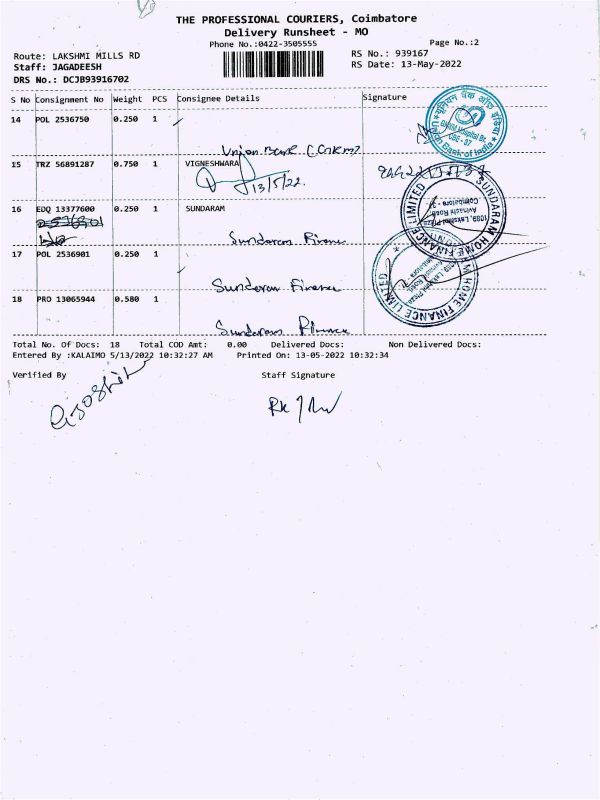 THE PROFESSIONAL COURIERS, Coimbatore
Delivery Runsheet - MO
Phone No.:0422-3505555
Page No.:2
Route: LAKSHMI MILLS RD
Staff: JAGADEESH
DRS No.: DCJB93916702
RS No.: 939167
RS Date: 13-May-2022
S No Consignment No Weight PCS Consignee Details Signature
14 POL 2536750 0.250 1
Union Bank
यूनियन बैंक ऑफ इंडिया
Union Bank of India
15 TRZ 56891287 0.750 1 VIGNESHWARA
13/5/22
16 EDQ 13377600 0.250 1 SUNDARAM
Sundaram Finance
SUNDARAM HOME FINANCE LIMITED
1089, Lakshmi Plaza
Avinashi Road,
Coimbatore
17 POL 2536901 0.250 1
Sundaram Finance
HOME FINANCE LIMITED
18 PRO 13065944 0.580 1
Sundaram Finance
Total No. Of Docs: 18 Total COD Amt: 0.00 Delivered Docs: Non Delivered Docs:
Entered By :KALAIMO 5/13/2022 10:32:27 AM Printed On: 13-05-2022 10:32:34
Verified By Staff Signature